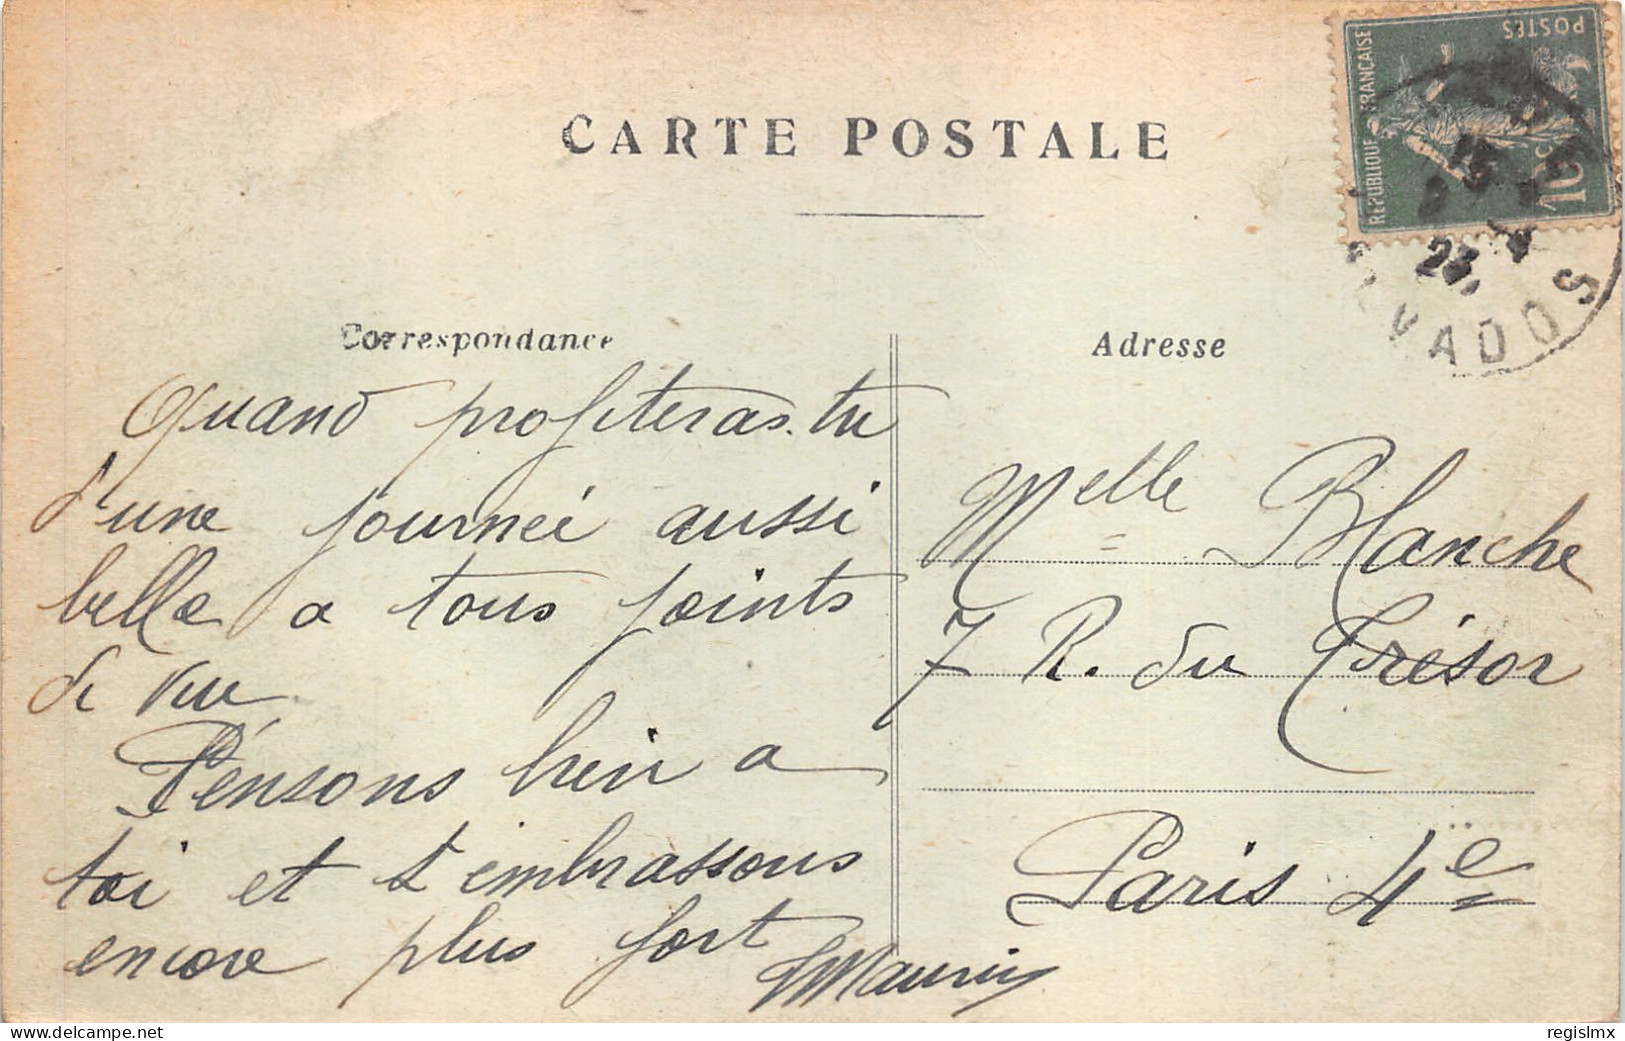 CARTE POSTALE
POSTES
REPUBLIQUE FRANÇAISE
10c
15
23
CALVADOS
Correspondance
Adresse
Quand profiteras-tu
d'une journeé aussi
belle a tous points
de vue
Pensons bien a
toi et t'embrassons
encore plus fort
Melle Blanche
7 R. du Trésor
Paris 4e
www.delcampe.net
regislmx